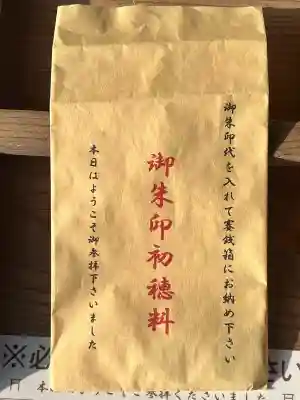 御朱印代を入れて賽銭箱にお納め下さい
御朱印初穂料
本日はようこそ御参拝下さいました
※必
さい